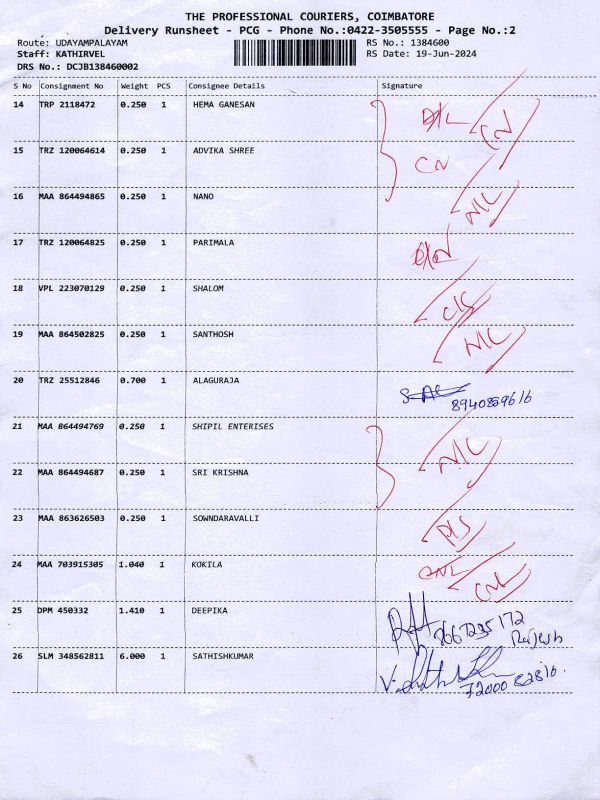 THE PROFESSIONAL COURIERS, COIMBATORE
Delivery Runsheet - PCG - Phone No.:0422-3505555 - Page No.:2
Route: UDAYAMPALAYAM RS No.: 1384600
Staff: KATHIRVEL RS Date: 19-Jun-2024
DRS No.: DCJB138460002
S No Consignment No Weight PCS Consignee Details Signature
14 TRP 2118472 0.250 1 HEMA GANESAN CN
15 TRZ 120064614 0.250 1 ADVIKA SHREE CN
16 MAA 864494865 0.250 1 NANO N/C
17 TRZ 120064825 0.250 1 PARIMALA
18 VPL 223070129 0.250 1 SHALOM
19 MAA 864502825 0.250 1 SANTHOSH N/C
20 TRZ 25512846 0.700 1 ALAGURAJA
21 MAA 864494769 0.250 1 SHIPIL ENTERISES N/C
22 MAA 864494687 0.250 1 SRI KRISHNA
23 MAA 863626503 0.250 1 SOWNDARAVALLI
24 MAA 703915305 1.040 1 KOKILA CNL CNL
25 DPM 450332 1.410 1 DEEPIKA Rajesh
26 SLM 348562811 6.000 1 SATHISHKUMAR